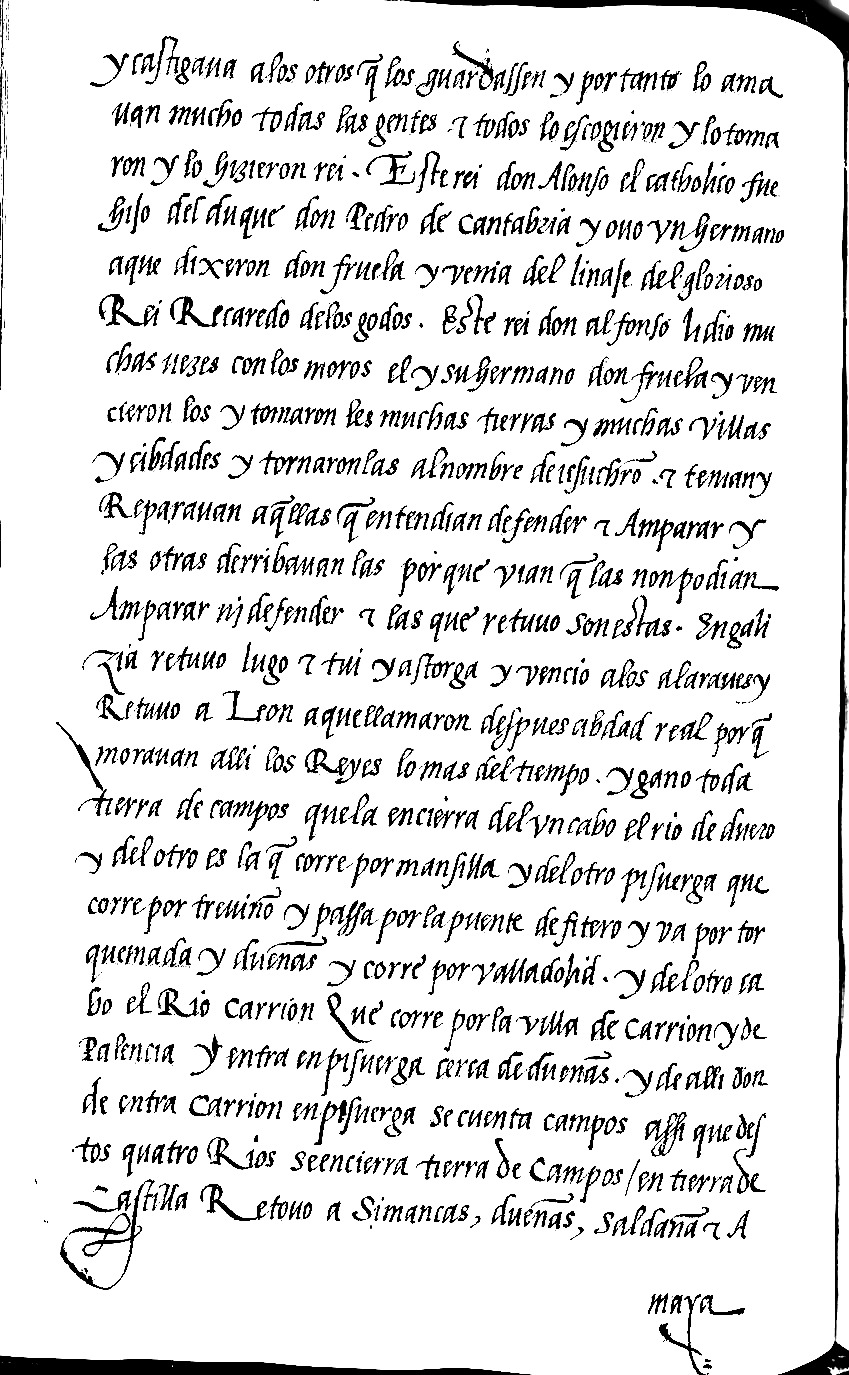 y castigaua a los otros q̃ los guardassen y por tanto lo ama
uan mucho todas las gentes ⁊ todos lo escogieron y lo toma
ron y lo hizieron rei. Este rei don Alonso el catholico fue
hijo del duque don Pedro de Cantabria y ouo vn hermano
a que dixeron don fruela y venia del linaje del glorioso
Rei Recaredo de los godos. Este rei don alfonso lidio mu
chas uezes con los moros el y su hermano don fruela y ven
cieron los y tomaron les muchas tierras y muchas villas
y cibdades y tornaron las al nombre de iesuchrō ⁊ tenian y
Reparauan aq̃llas q̃ entendian defender ⁊ Amparar y
las otras derribauan las porque vian q̃ las non podian
Amparar nj defender ⁊ las que retuuo son estas. En gali
zia retuuo lugo ⁊ tui y astorga y vencio a los alaraues y
Retuuo a Leon a que llamaron despues cibdad real porq̃
morauan alli los Reyes lo mas del tiempo. y gano toda
tierra de campos que la encierra del vn cabo el rio de duero
y del otro es la q̃ corre por mansilla y del otro pisuerga que
corre por treuiño y passa por la puente de fitero y va por tor
quemada y dueñas y corre por valladolid. y del otro ca
bo el Rio Carrion Que corre por la villa de Carrion y de
Palencia y entra en pisuerga cerca de dueñas. y de alli don
de entra Carrion en pisuerga se cuenta campos assi que des
tos quatro Rios se encierra tierra de Campos / en tierra de
Castilla Retouo a Simancas, dueñas, Saldaña ⁊ A
maya